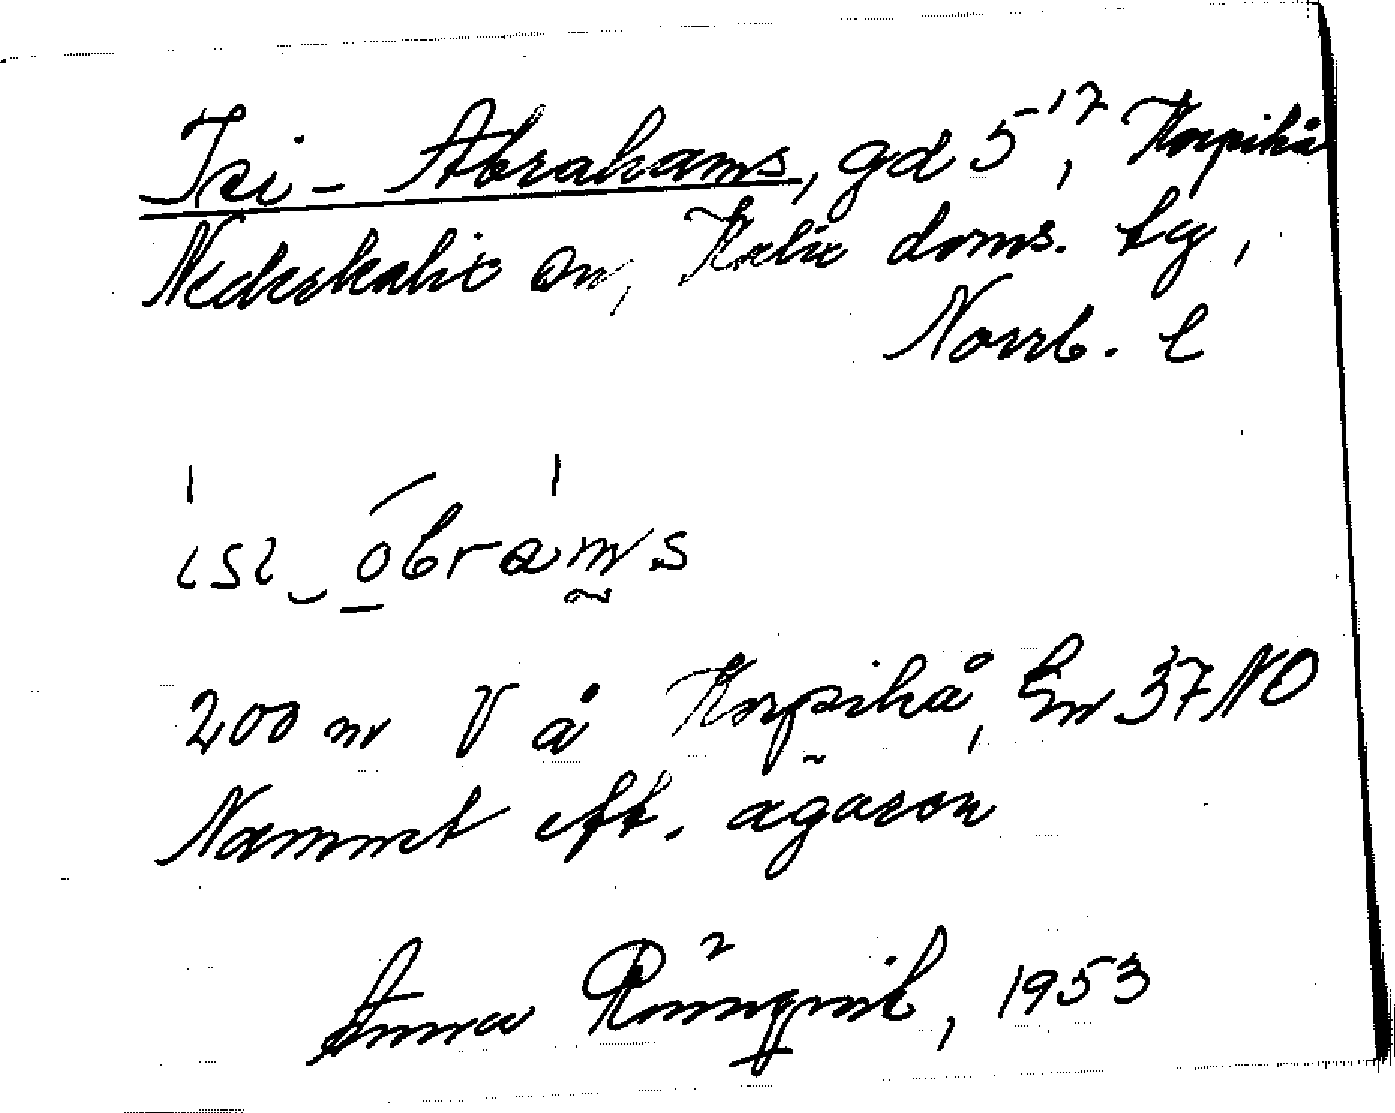 Isi-Abrahams, gd 5¹⁷, Korpikå
Nederkalix sn, Kalix doms. lg,
Norrb. l
ısı‿ábrams
200 m V å Korpikå, Er 37 NO
Namnet eft. ägaren
Anna Rönnqvist, 1953